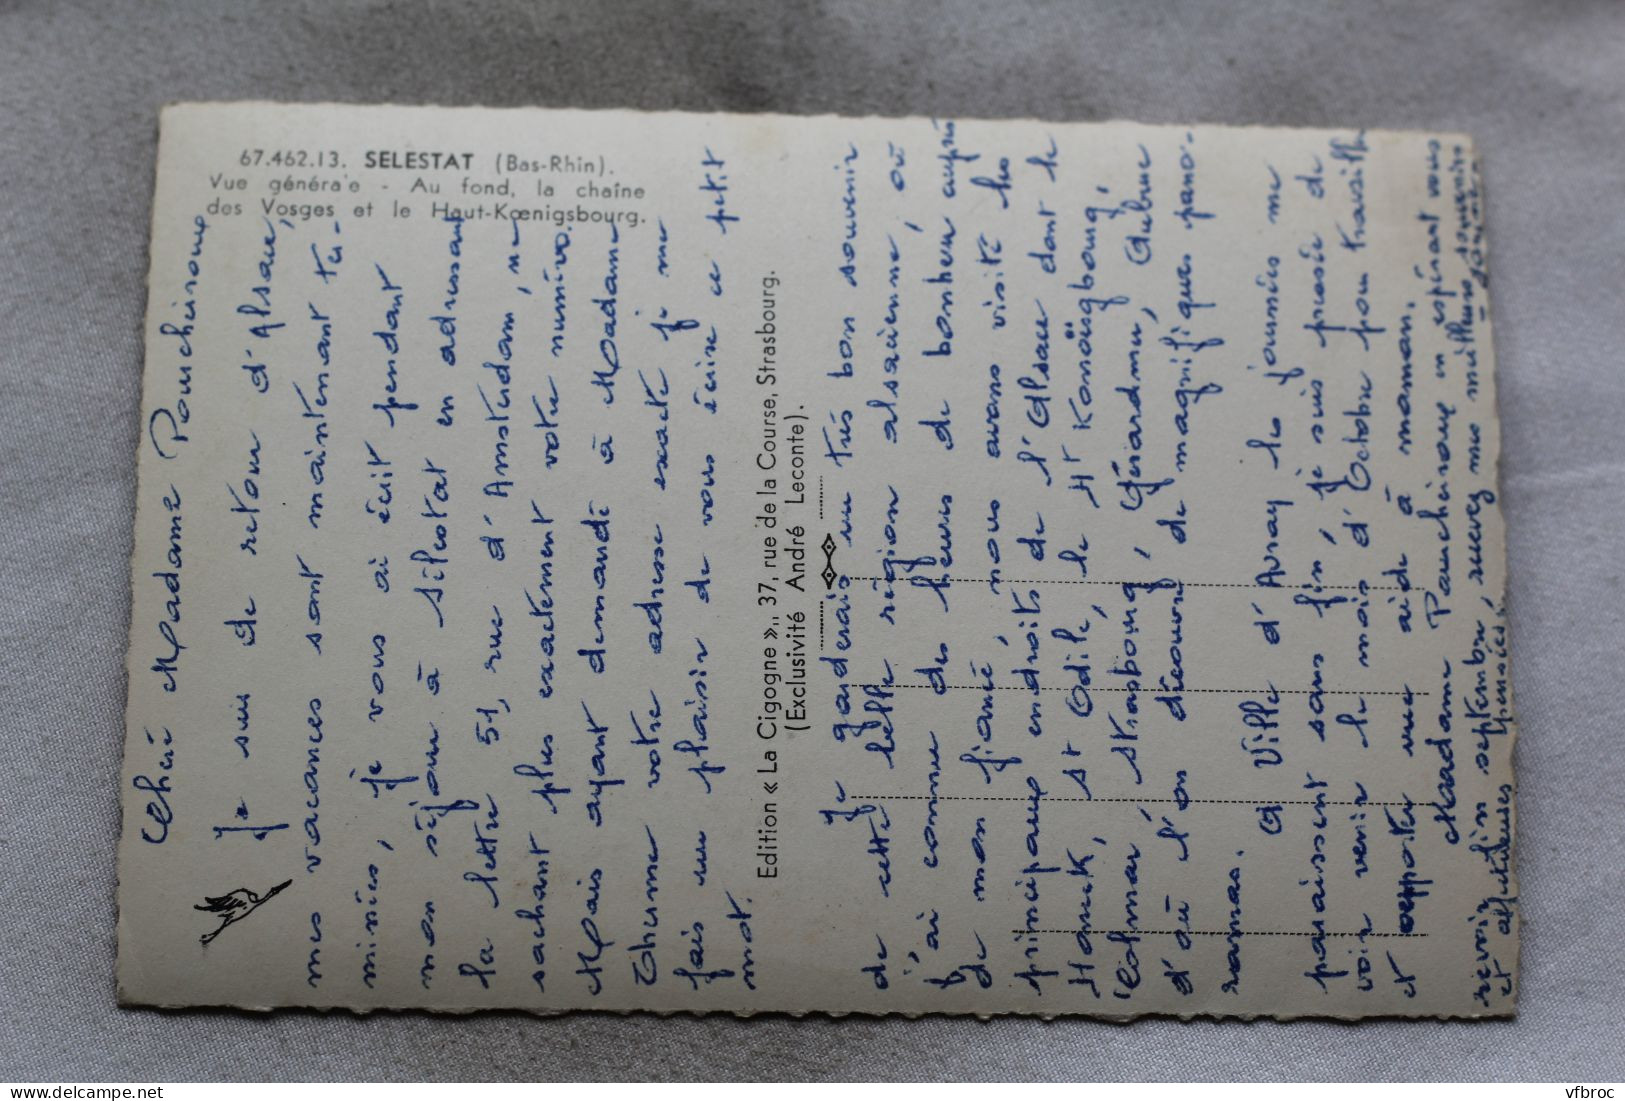 67.462.13. SELESTAT (Bas-Rhin).
Vue générale - Au fond, la chaîne
des Vosges et le Haut-Kœnigsbourg.
Chéri Madame Poucheiroux
Je suis de retour d'Alsace,
mes vacances sont maintenant ter-
minées, je vous ai écrit pendant
mon séjour à Sélestat en adressant
la lettre 51, rue d'Amsterdam, ne
sachant plus exactement votre numéro.
Mais ayant demandé à Madame
Theume votre adresse exacte je me
fais un plaisir de vous écrire ce petit
mot.
Edition « La Cigogne », 37, rue de la Course, Strasbourg.
(Exclusivité André Leconte).
Je garderais un très bon souvenir
de cette belle région alsacienne, où
j'ai connu des heures de bonheur auprès
de mon fiancé, nous avons visité les
principaux endroits de l'Alsace dont le
Honeck, St Odile, le Ht Konoïgbourg,
Colmar, Strasbourg, Gérardmer, Guebruc
d'où l'on découvre de magnifiques pano-
ramas.
A Ville d'Avray les journées me
paraissent sans fin, je suis pressée de
voir venir le mois d'Octobre pour travailler
et apporter une aide à maman.
Madame Poucheiroux en espérant vous
revoir fin septembre, recevez mes meilleurs souvenirs
et affectueuses pensées.
vfbroc